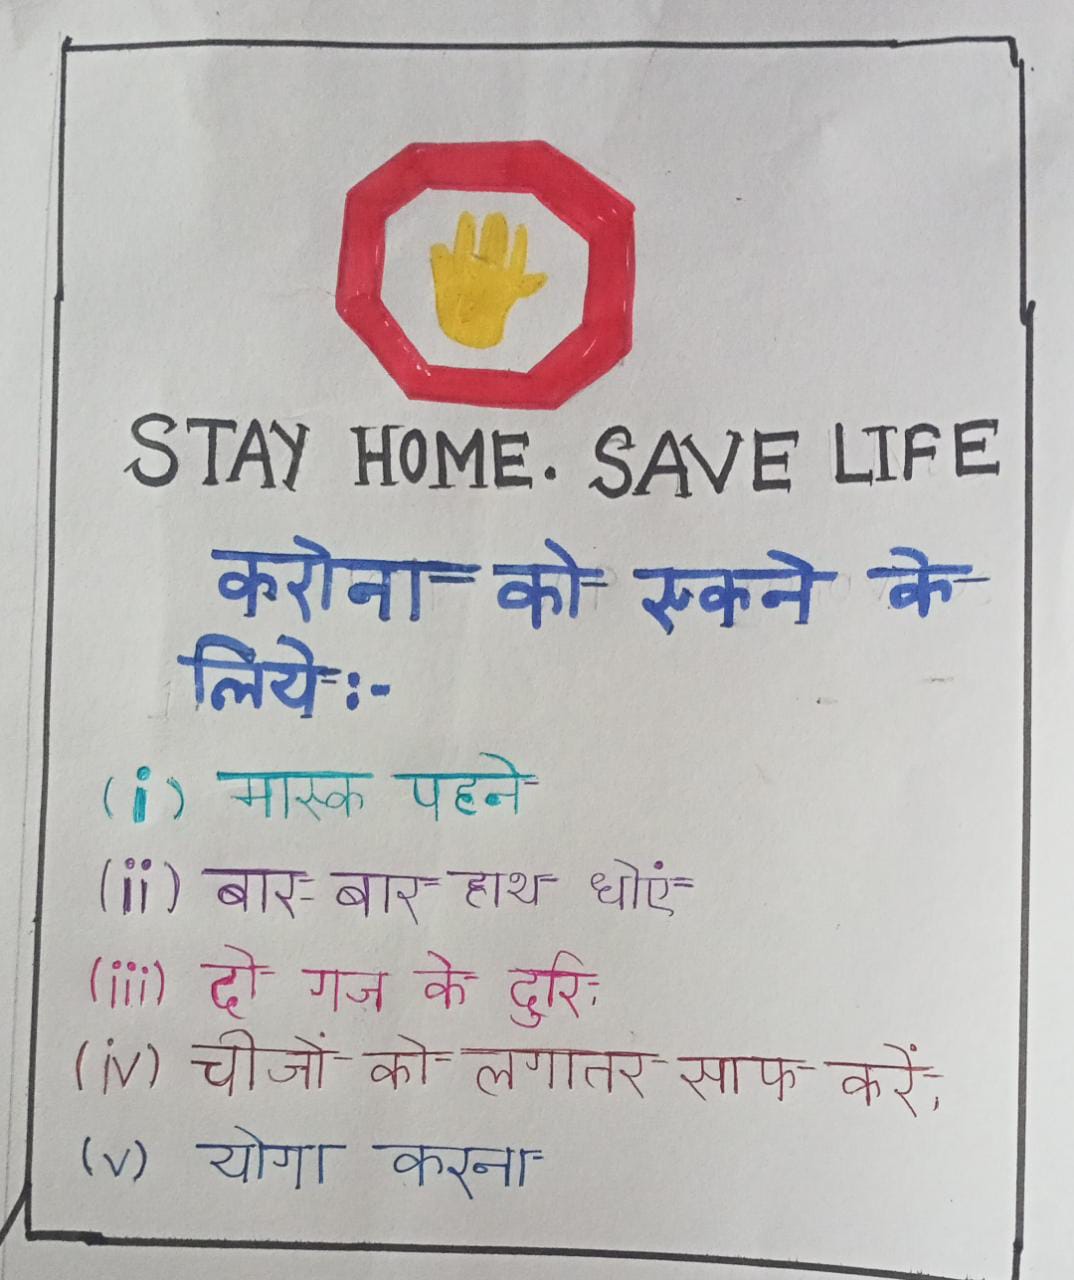 STAY HOME. SAVE LIFE
करोना को रुकने के
लिये:-
(i) मास्क पहने
(ii) बार बार हाथ धोएं
(iii) दो गज के दुरि
(iv) चीजों को लगातर साफ करें,
(v) योगा करना